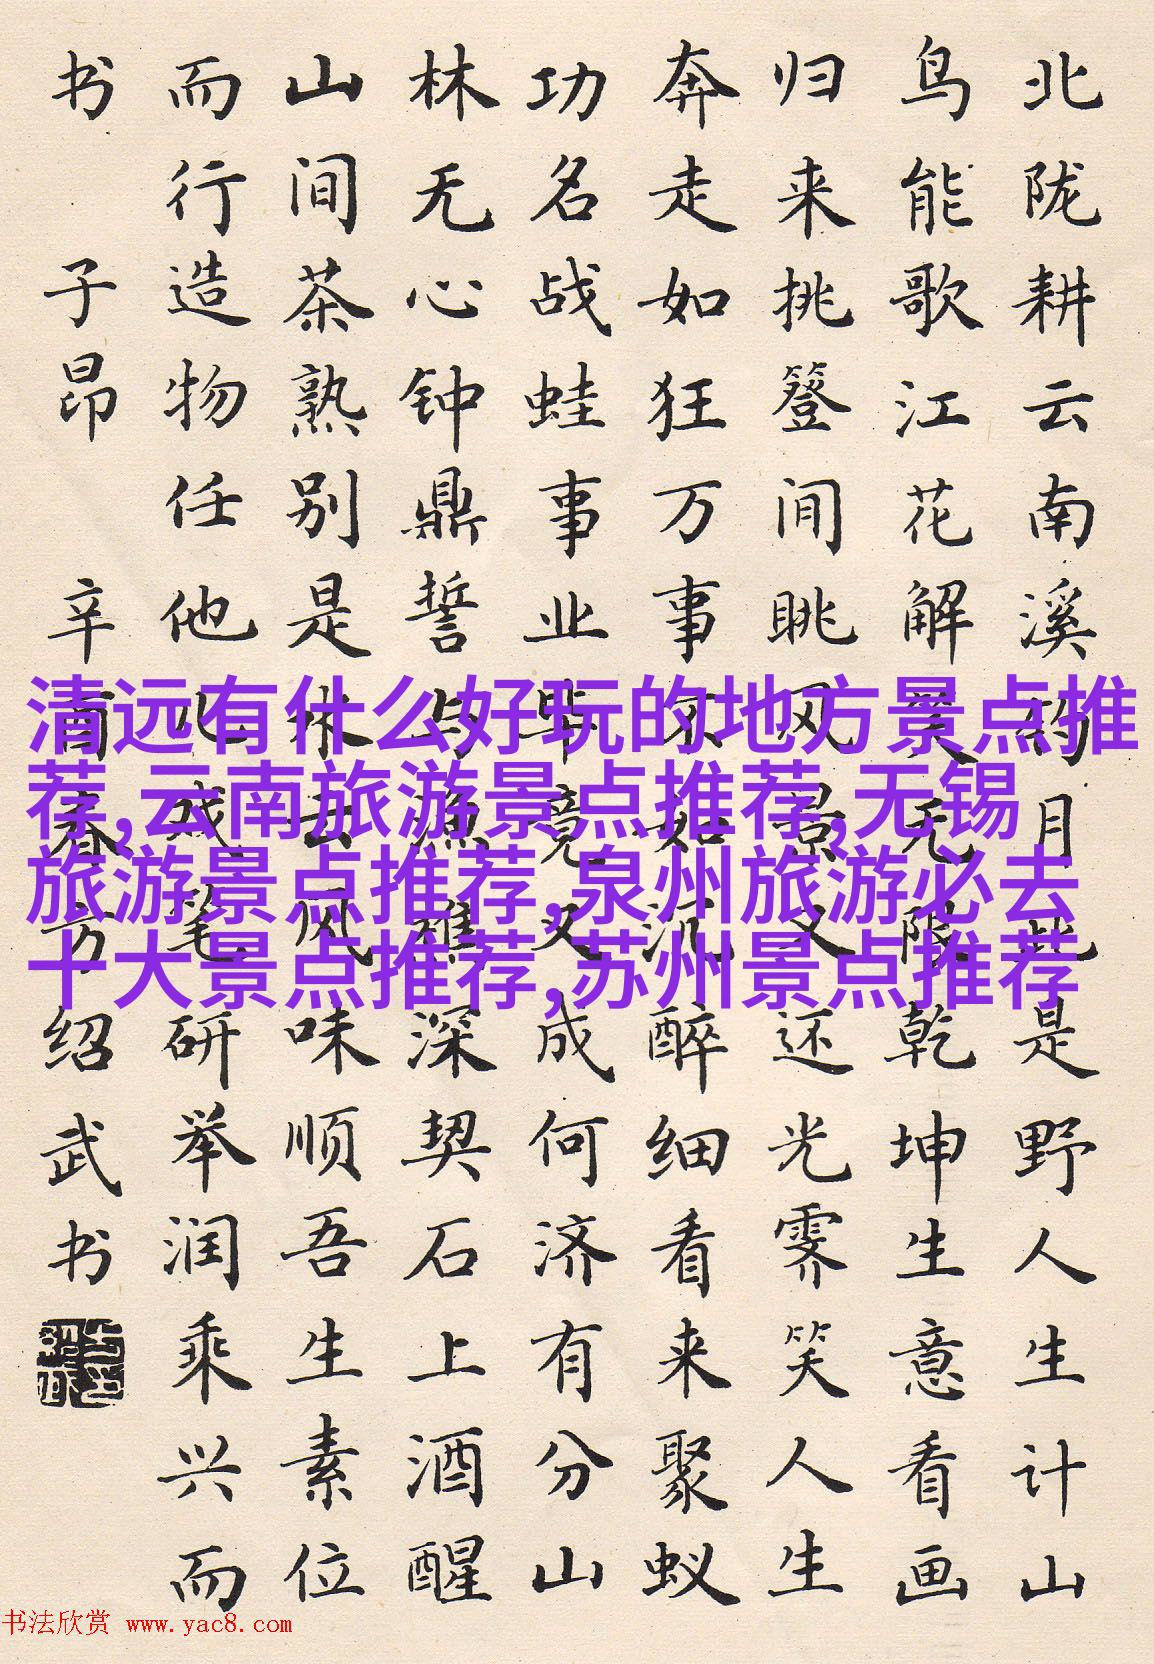 北陇耕云南溪钓月此是野人生计山
鸟能歌江花解笑无限乾坤生意看画
归来挑簦间眺风景又还光霁笑人生
奔走如狂万事不如沉醉细看来聚蚁
功名战蛙事业毕竟又成何济有分山
林无心钟鼎誓与渔樵深契石上酒醒
山间茶熟别是水云风味顺吾生素位
而行造物任他儿戏笔研举润乘兴而
书 子昂 辛酉春方绍武书
清远有什么好玩的地方景点推
荐,云南旅游景点推荐,无锡
旅游景点推荐,泉州旅游必去
十大景点推荐,苏州景点推荐
书法欣赏 www.yac8.com